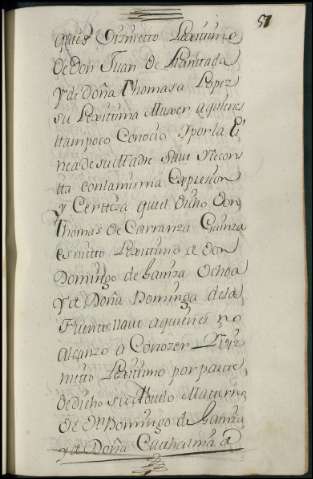 51
que es Vismietto Lexitimo
de Don Juan de
y de Doña Thomasa Lopez
su Lexitima Muxer aquienes
ttampoco Conocio Y por la li
nea de su Madre save y le con
tta con la misma Expresion
y Certteza que el dicho Don
Thomas de Carranza Gainza
es nietto Lexitimo de Don
Domingo de Gainza Ochoa
y de Doña Dominga de la
Fuente aquienes no
alcanzo a Conozer Y Viz
nietto Lexitimo por partte
de dicho su Abuelo Matterno
de Dn Domingo de Gainza
y de Doña Catthalina de